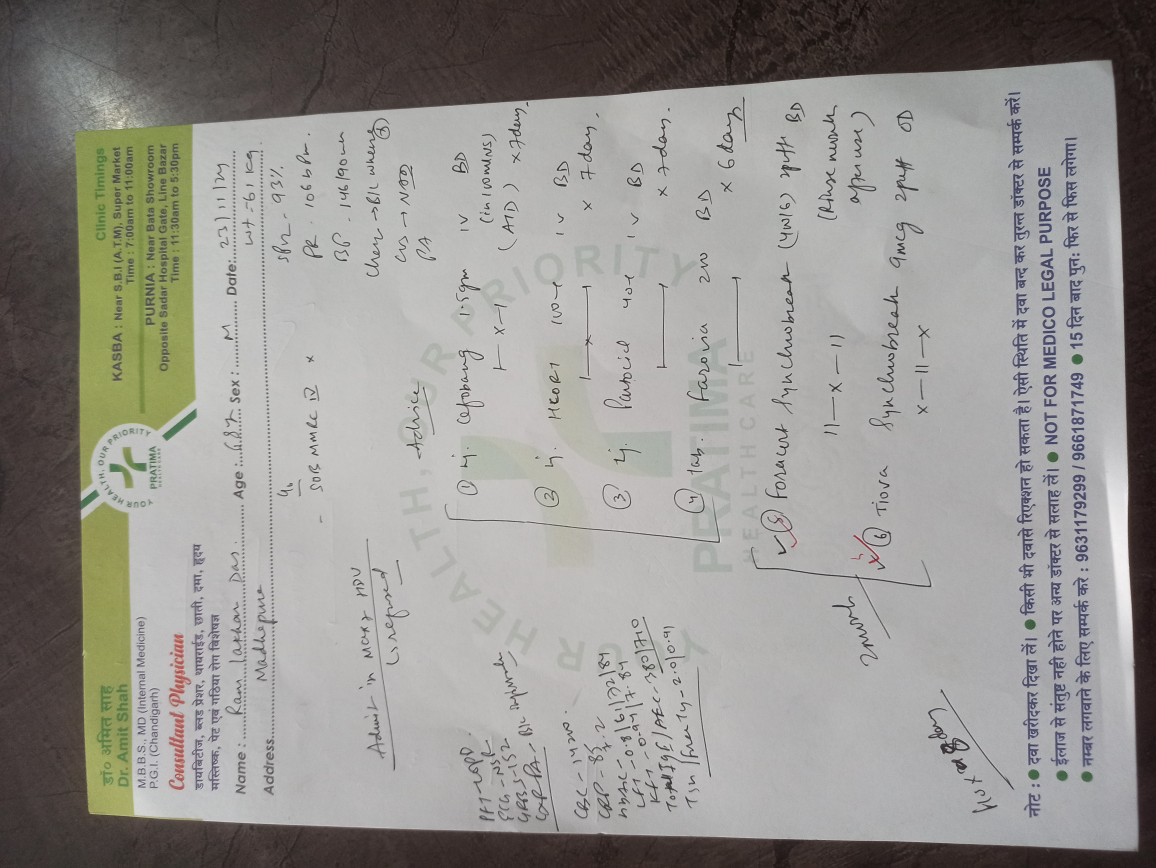 डॉ० अमित साह
Dr. Amit Shah
M.B.B.S., MD (Internal Medicine)
P.G.I. (Chandigarh)
Consultant Physician
डायबिटीज, ब्लड प्रेशर, थायराईड, छाती, दमा, हृदय
मस्तिष्क, पेट एवं गठिया रोग विशेषज्ञ
YOUR HEALTH, OUR PRIORITY
PRATIMA
HEALTH CARE
Clinic Timings
KASBA : Near S.B.I (A.T.M), Super Market
Time : 7:00am to 11:00am
PURNIA : Near Bata Showroom
Opposite Sadar Hospital Gate, Line Bazar
Time : 11:30am to 5:30pm
Name : Ram Lakhan Das. Age : 68y Sex : M Date: 23/11/24
Address Madhepura Wt-61 kg
SOB MMRC IV x
SPO2 - 93%
PR - 106 bpm.
BP - 146/90
Chest → B/L wheeze
CVS → NAD
PA
Admit in HDU
↳ refused
Advice
① Inj. 1.5gm IV BD
(in 100ml NS)
1—x—1 (ATD) x 7days
② Inj. HCORT 100 IV BD
x 7days.
③ Inj. Pantocid 40 IV BD
x 7days.
④ Tab. 200 BD
x 6days
⑤ Foracort Synchrobreath (400/6) 2puff BD
11—x—11 (Rinse mouth
after use)
⑥ Tiova Synchrobreath 9mcg 2puff OD
x—11—x
2month
PFT - COPD.
ECG - NSR
GRBS - 152
CBC -
CRP -
HbA1C -
LFT -
KFT -
Total IgE/AEC - 380/710
TSH/Free T4 - 2.0/0.91
PRATIMA
HEALTH CARE
YOUR HEALTH, OUR PRIORITY
नोट : ● दवा खरीदकर दिखा लें। ● किसी भी दवासे रिएक्शन हो सकता है। ऐसी स्थिति में दवा बन्द कर तुरन्त डॉक्टर से सम्पर्क करें।
● ईलाज से संतुष्ट नही होने पर अन्य डॉक्टर से सलाह लें। ● NOT FOR MEDICO LEGAL PURPOSE
● नम्बर लगवाने के लिए सम्पर्क करे : 9631179299 / 9661871749 ● 15 दिन बाद पुनः फिर से फिस लगेगा।